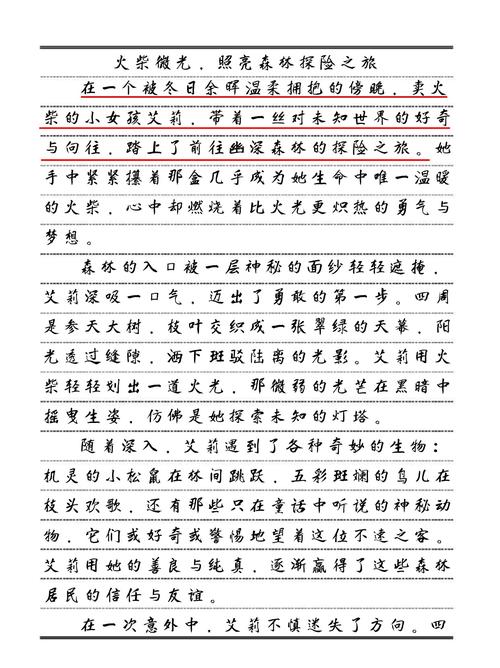 火柴微光，照亮森林探险之旅
在一个被冬日余晖温柔拥抱的傍晚，卖火
柴的小女孩艾莉，带着一丝对未知世界的好奇
与向往，踏上了前往幽深森林的探险之旅。她
手中紧紧攥着那盒几乎成为她生命中唯一温暖
的火柴，心中却燃烧着比火光更炽热的勇气与
梦想。
森林的入口被一层神秘的面纱轻轻遮掩，
艾莉深吸一口气，迈出了勇敢的第一步。四周
是参天大树，枝叶交织成一张翠绿的天幕，阳
光透过缝隙，洒下斑驳陆离的光影。艾莉用火
柴轻轻划出一道火光，那微弱的光芒在黑暗中
摇曳生姿，仿佛是她探索未知的灯塔。
随着深入，艾莉遇到了各种奇妙的生物：
机灵的小松鼠在林间跳跃，五彩斑斓的鸟儿在
枝头欢歌，还有那些只在童话中听说的神秘动
物，它们或好奇或警惕地望着这位不速之客。
艾莉用她的善良与纯真，逐渐赢得了这些森林
居民的信任与友谊。
在一次意外中，艾莉不慎迷失了方向。四